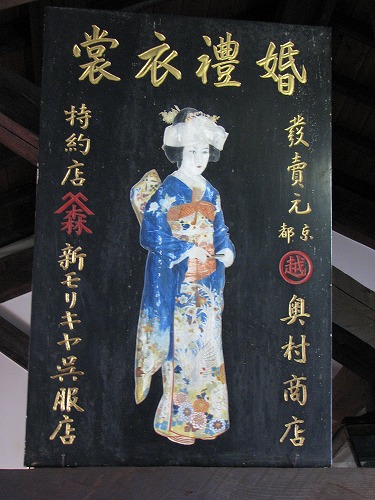 婚禮衣裳
發賣元
京都
越
奥村商店
特約店
森
新モリキヤ呉服店